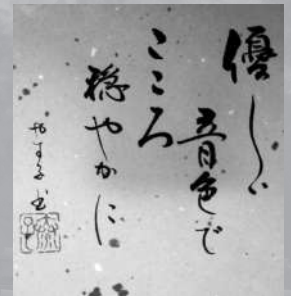 優しい
音色で
こころ
穏やかに
やす子書